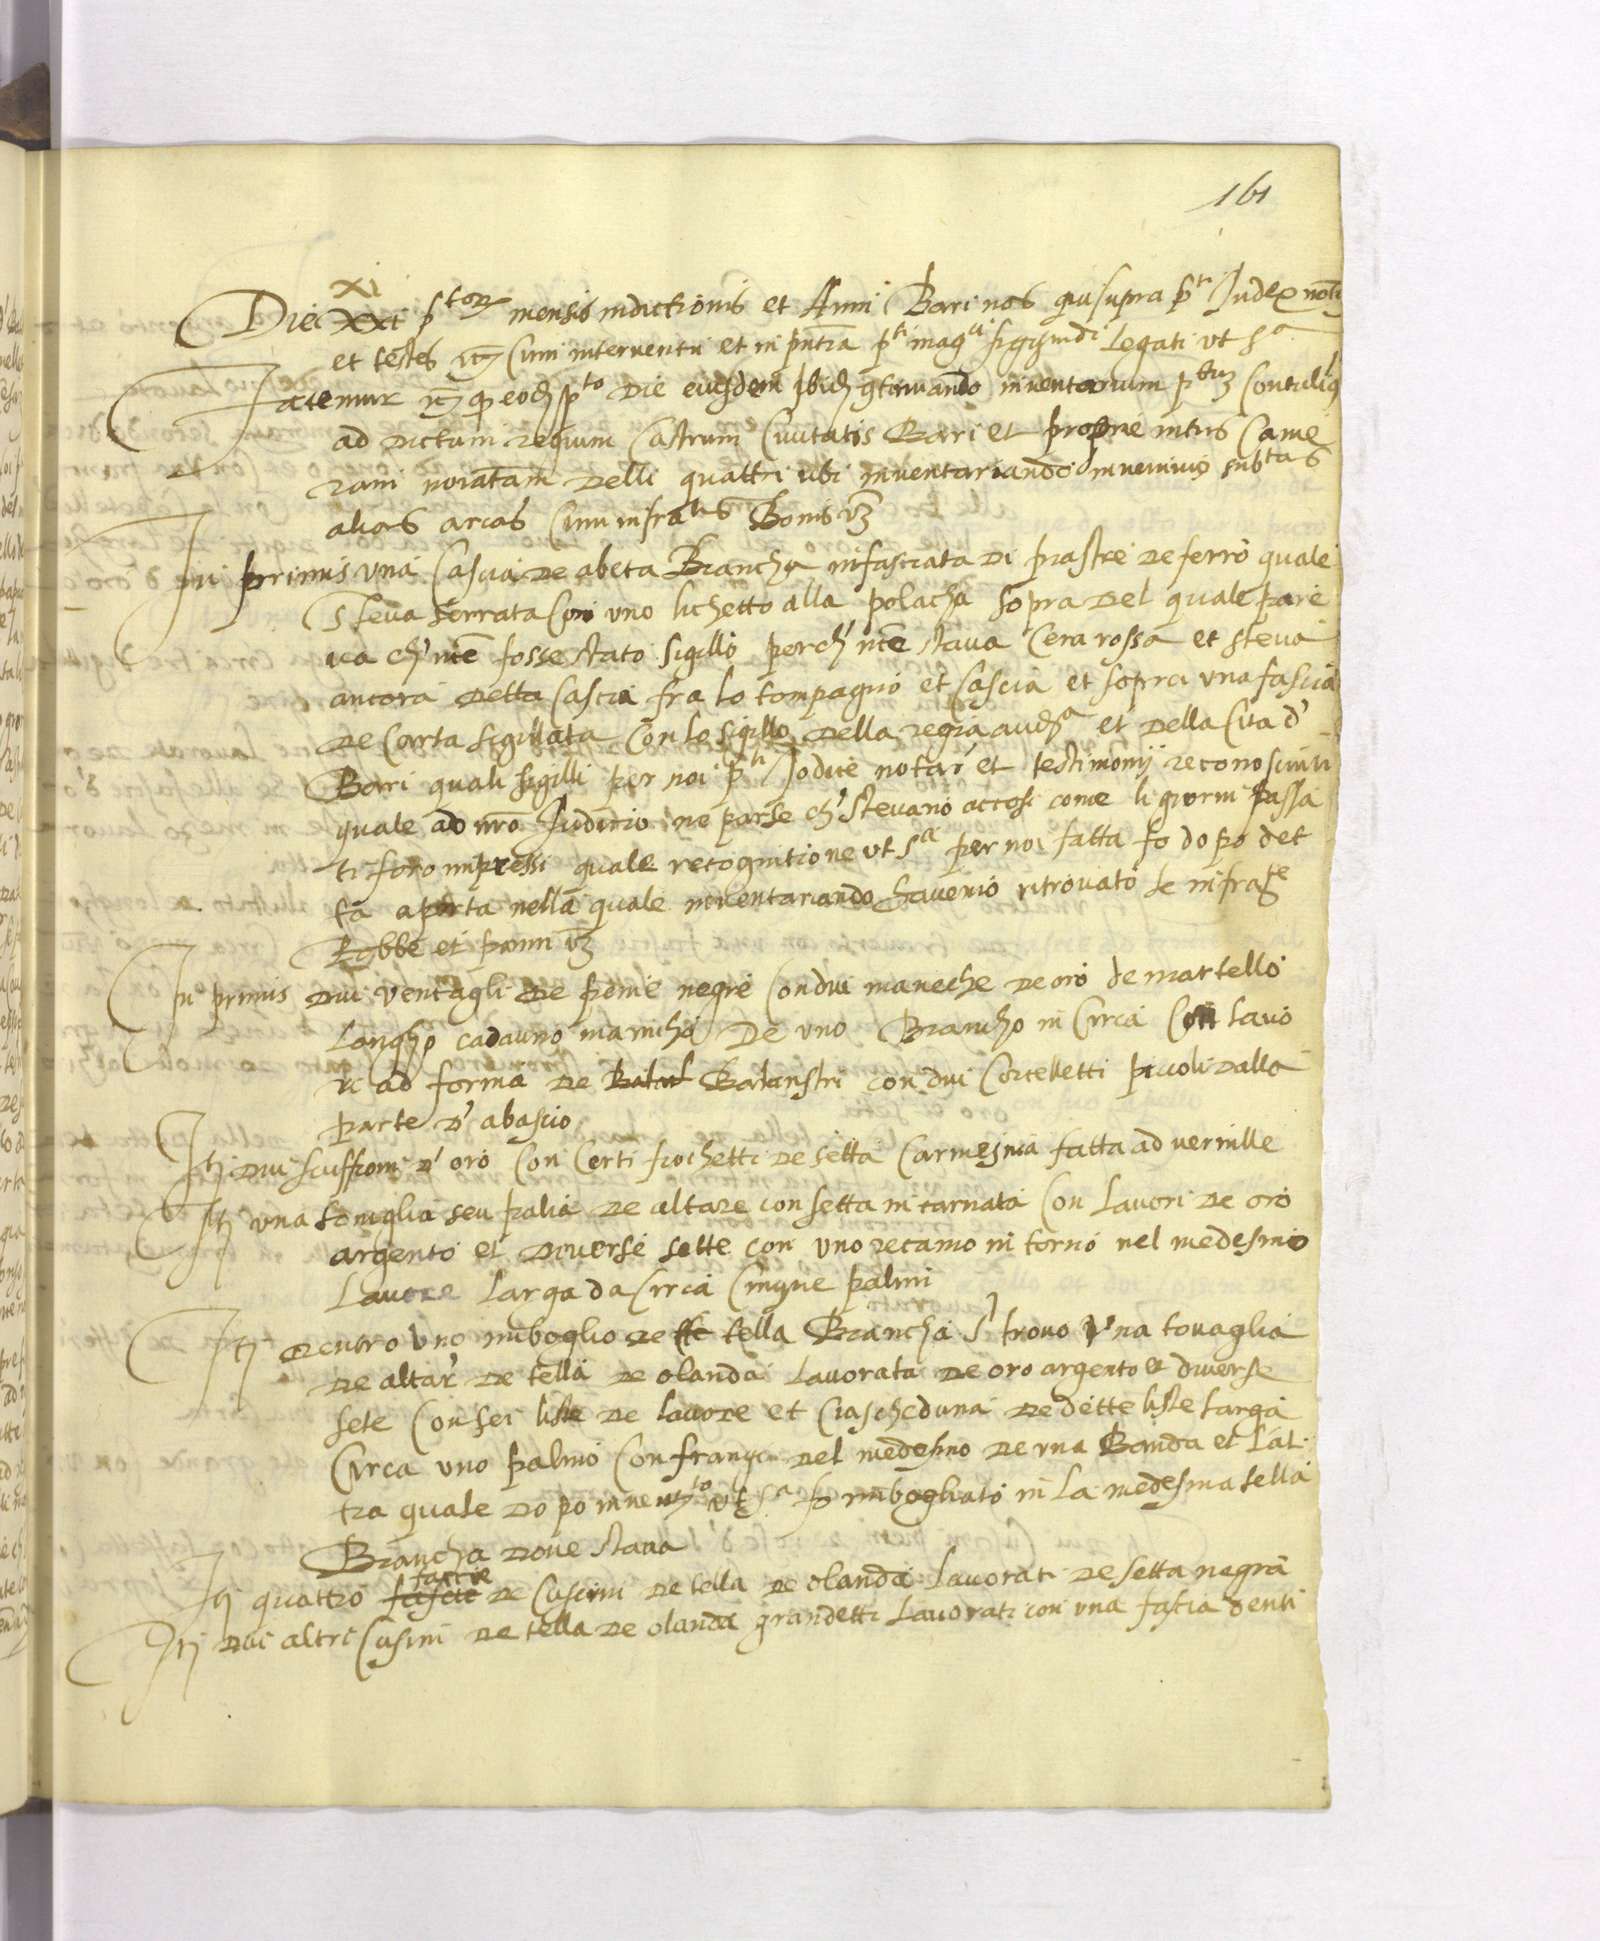 161
xi
Die xxi p^torum mensis indictionis et Anni Bari nos qui supra p^ti Judex not^s
et testes cum interventu et in pntia p^ti mag^ci sigismdi Legati ut s^a
Fatemur q eod p^to Die eiusdem ibid gtinuando inventarium p^tum Contulim9
ad Dictum regium Castrum Civitatis Bari et proprie intus Came
ram noiatam Delli quattri ubi inventariando invenimus sub^tas
alias arcas Cum infra^tis Bonis vz
In primis una Cascia De abeta Biancha infasciata Di piastre De ferro quale
Steva serrata Con uno lichetto alla polacha sopra Del quale pare
va ch' nce fosse stato sigillo perch' nce stava Cera rossa et steva
ancora Detta Cascia fra lo compagno et Cascia et sopra una fascia
De Carta Sigillata Con lo sigillo Della regia aud^a et Della Cita d'
Bari quali sigilli per noi p^ti Jodice notar' et testimonij reconosciuti
quale ad nro Juditio ne parse ch' stevano accosi come li giorni passa
ti foro impressi quale recognitione ut s^a per noi fatta fo dopo det
ta aperta nella quale inventariando havemo ritrovato le infra^te
Robbe et panni vz
In primis Dui ventagli De penne negre Con dui maneche De oro de martello
Longho cadauno manicho De uno Brancho in Circa Con lavo
ri ad forma De Balaust Balaustri con dui Cortelletti piccoli Dalla
parte D' abascio
Itj Dui scuffioni D' oro Con Certi fiochetti De setta Carmesina fatta ad vernille
Itj una toniglia seu palia De altare con setta incarnata Con Lavori De oro
argento et Diverse sette con uno recamo in torno nel medesmo
Lavore Larga da Circa Cinque palmi
Itj Dentro uno imboglio De tte tella Biancha s' trovo una tovaglia
De altar' De tella De olanda Lavorata De oro argento et diverse
sete Con sei liste De lavore et Ciascheduna De dette liste larga
Circa uno palmo Con frangi Del medesmo De una Banda et l'al
tra quale Dopo invent^to ut s^a fo imbogliato in La medesma tella
Biancha Dove stava
faccie
Itj quattro fascie De Cuscini De tella De olanda Lavorati De setta negra
Itj Dui altri Cusini De tella De olanda grandetti Lavorati con una fascia denti